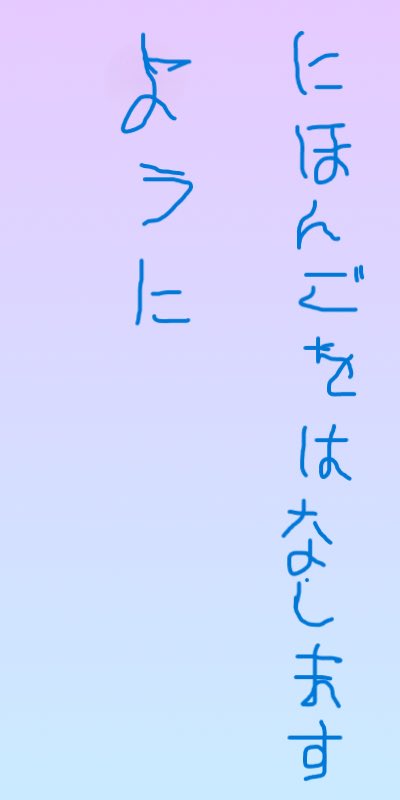 にほんごをはなします
ように